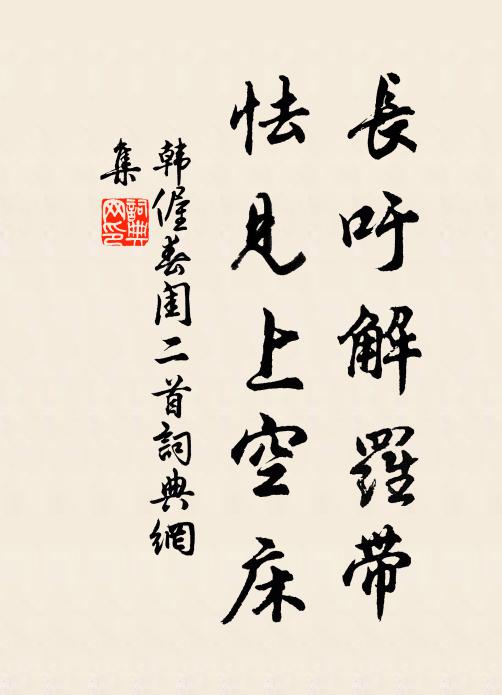 長吁解羅帶
怯見上空床
韩偓春閨二首詞典網
集
詞典网印